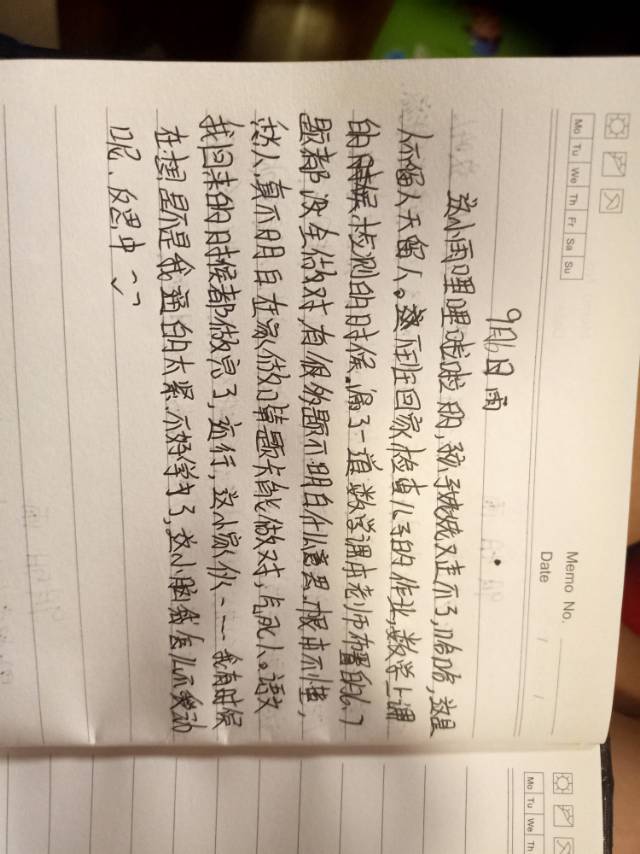 Memo No.
Mo Tu We Th Fr Sa Su
Date / /
9月6日 雨
这小雨哩哩啦啦的,孩子姥姥又走不了,哈哈,这是
人不留人天留人。这下班回家检查儿子的作业,数学上课
的时候,检测的时候,漏了一道数学课本老师布置的6、7
题都没全做对,有很多题不明白什么意思,根本不懂,
愁人,真不明白在家做口算题卡能做对,气死人。语文
我回来的时候都做完了,还行,这小家伙、一一我有时候
在想是不是我逼的太紧,不好学习了,这小脑袋怎么不爱动
呢、反思中
Mo Tu We Th